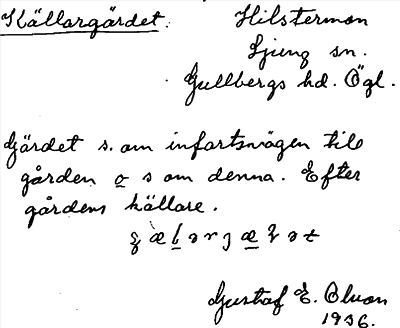 Källargärdet.
Hilsterman
Ljung sn.
Gullbergs hd. Ögl.
Gärdet s. om infartsvägen till
gården o s om denna. Efter
gårdens källare.
Gustaf E. Olson
1936.